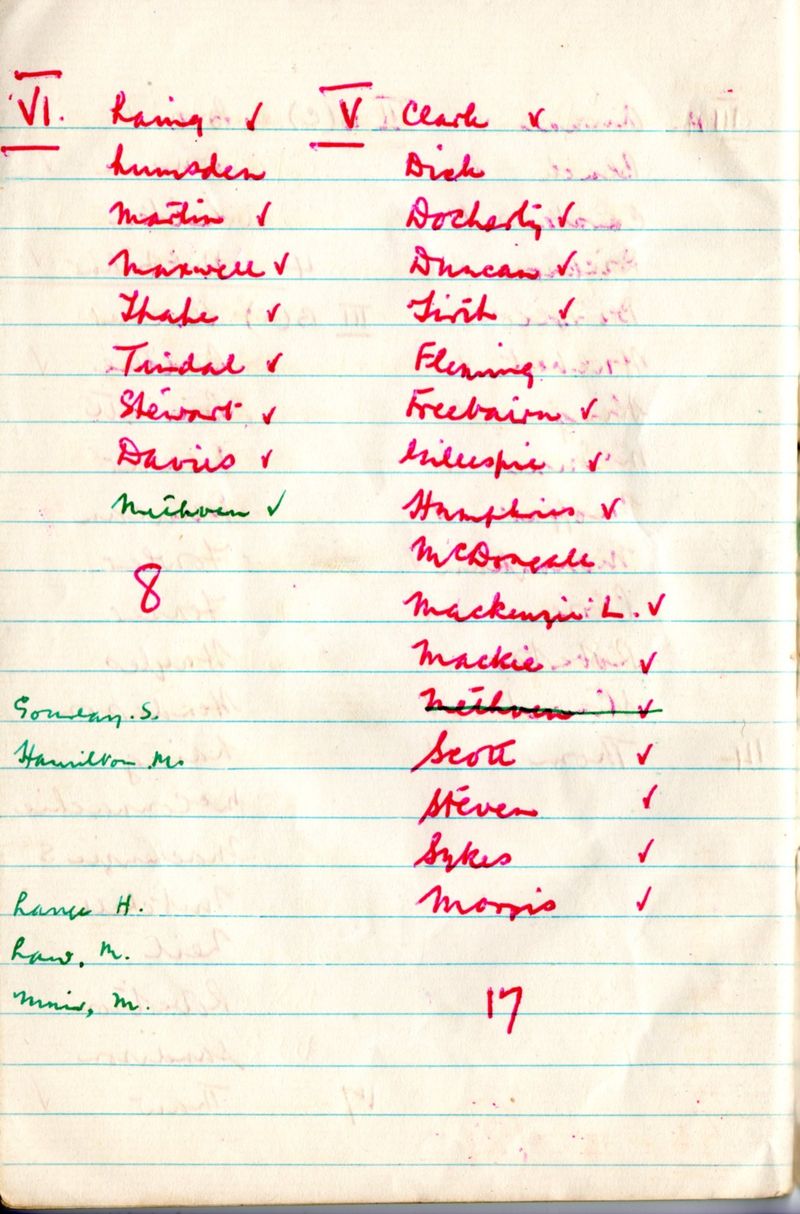 VI. Laing ✓
Lumsden
Martin ✓
Maxwell ✓
Thake ✓
Tindal ✓
Stewart ✓
Davies ✓
Methven ✓
8
Gourlay. S.
Hamilton. M.
H.
Law, M.
M.
V Clark ✓
Dick
Docherty ✓
Duncan ✓
Firth ✓
Fleming
Freebairn ✓
Gillespie ✓
Humphries ✓
McDougall
Mackenzie L. ✓
Mackie ✓
Methven ✓
Scott ✓
Steven ✓
Sykes ✓
Morris ✓
17